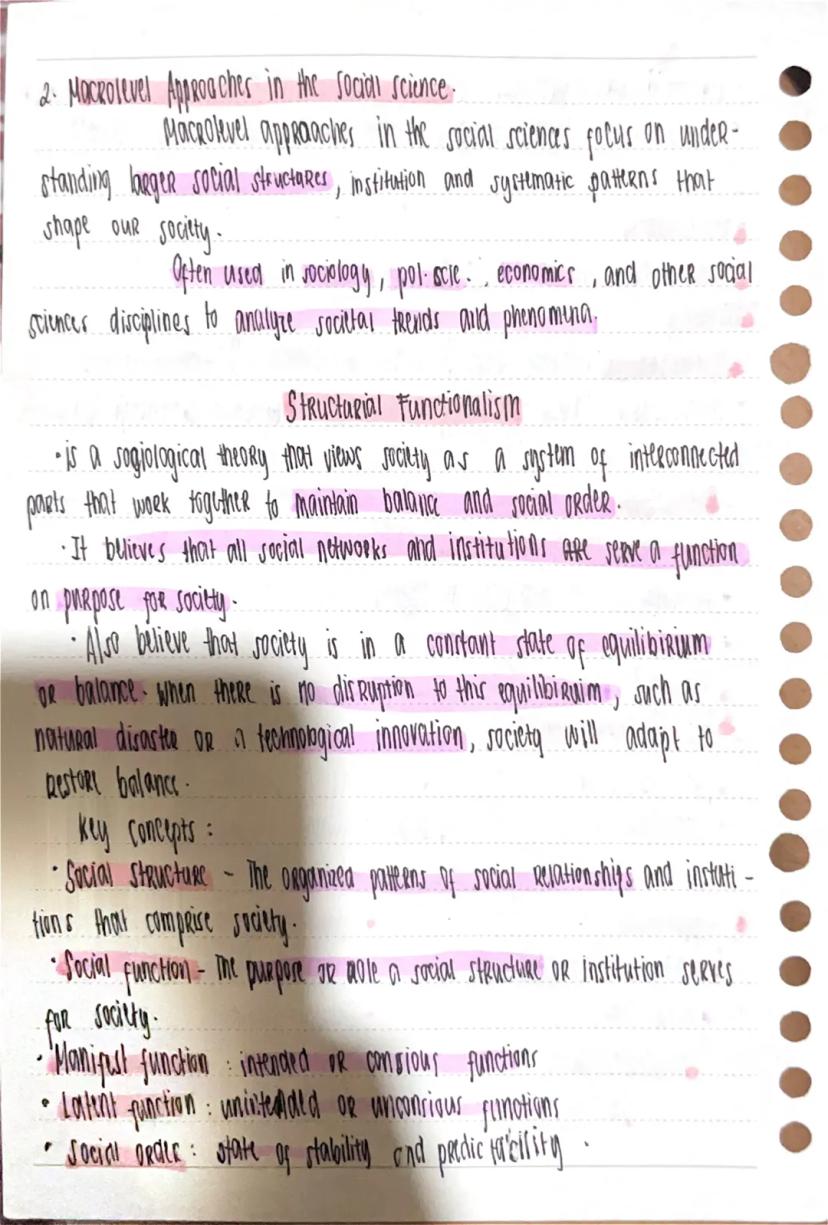 2. Macrolevel Approaches in the social science.
Macrolevel approaches in the social sciences focus on under-
standing larger social structures, institution and systematic patterns that
shape our society.
Often used in sociology, pol.scie., economics, and other social
sciences disciplines to analyze societal trends and phenomena.
Structurial Functionalism
• is a sogiological theory that views society as a system of interconnected
parts that work together to maintain balance and social order.
• It believes that all social networks and institutions are serve a function
on purpose for society.
• Also believe that society is in a constant state of equilibirium
or balance. When there is no disruption to this equilibiruim, such as
natural disaster or a technological innovation, society will adapt to
restore balance.
Key Concepts:
• Social Structure - The organized patterns of social relationships and institu-
tions that comprise society.
• Social function - The purpose or role a social structure or institution serves
for society.
• Manifest function : intended or consious functions
• Latent function : unintended or unconsious functions
• Social order : state of stability and predictability.